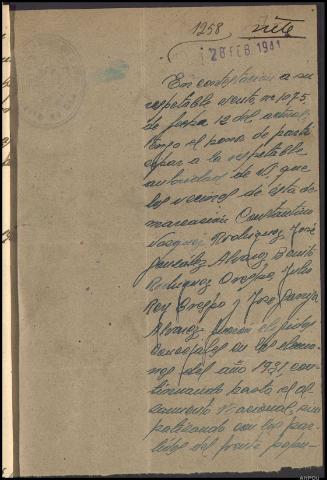 1258 siete
28 FEB. 1941
En contestación a su
respetable escrito nº 1075
de fecha 12 del actual
tengo el honor de parti
cipar a la respetable
autoridad de V. que
los vecinos de esta de
marcación Constantino
Vazquez Rodriguez, José
González Alvarez, Benito
Rodriguez Crespo, Julio
Rey Crespo y José
Alvarez fueron elegidos
Concejales en las eleccio
nes del año 1931, con
tinuando hasta el al
zamiento Nacional, sim
patizando con los par
tidos del frente popu-
ANPOU